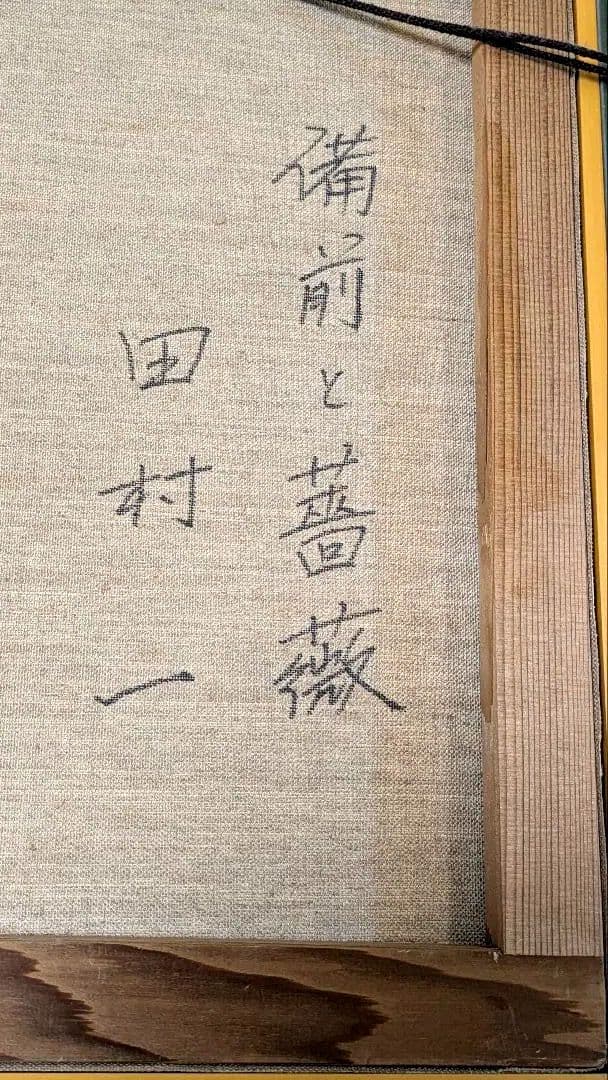 備前と薔薇
田村一